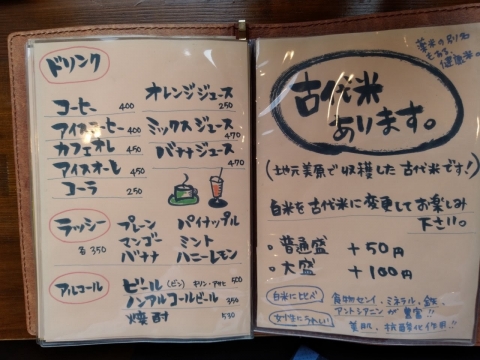 ドリンク
コーヒー 400
アイスコーヒー 400
カフェオレ 450
アイスオーレ 450
コーラ 250
オレンジジュース 250
ミックスジュース 470
バナナジュース 470
ラッシー
各350
プレーン パイナップル
マンゴー ミント
バナナ ハニーレモン
アルコール
ビール (ビン) キリン・アサヒ 500
ノンアルコールビール 350
焼酎 530
薬米の別名
もある
健康米の
古代米
あります。
(地元美原で収穫した古代米です!)
白米を古代米に変更してお楽しみ
下さい。
普通盛 +50円
大盛 +100円
白米に比べ 食物センイ、ミネラル、鉄、
アントシアニンが豊富!!
女性にうれしい 美肌、抗酸化作用!!